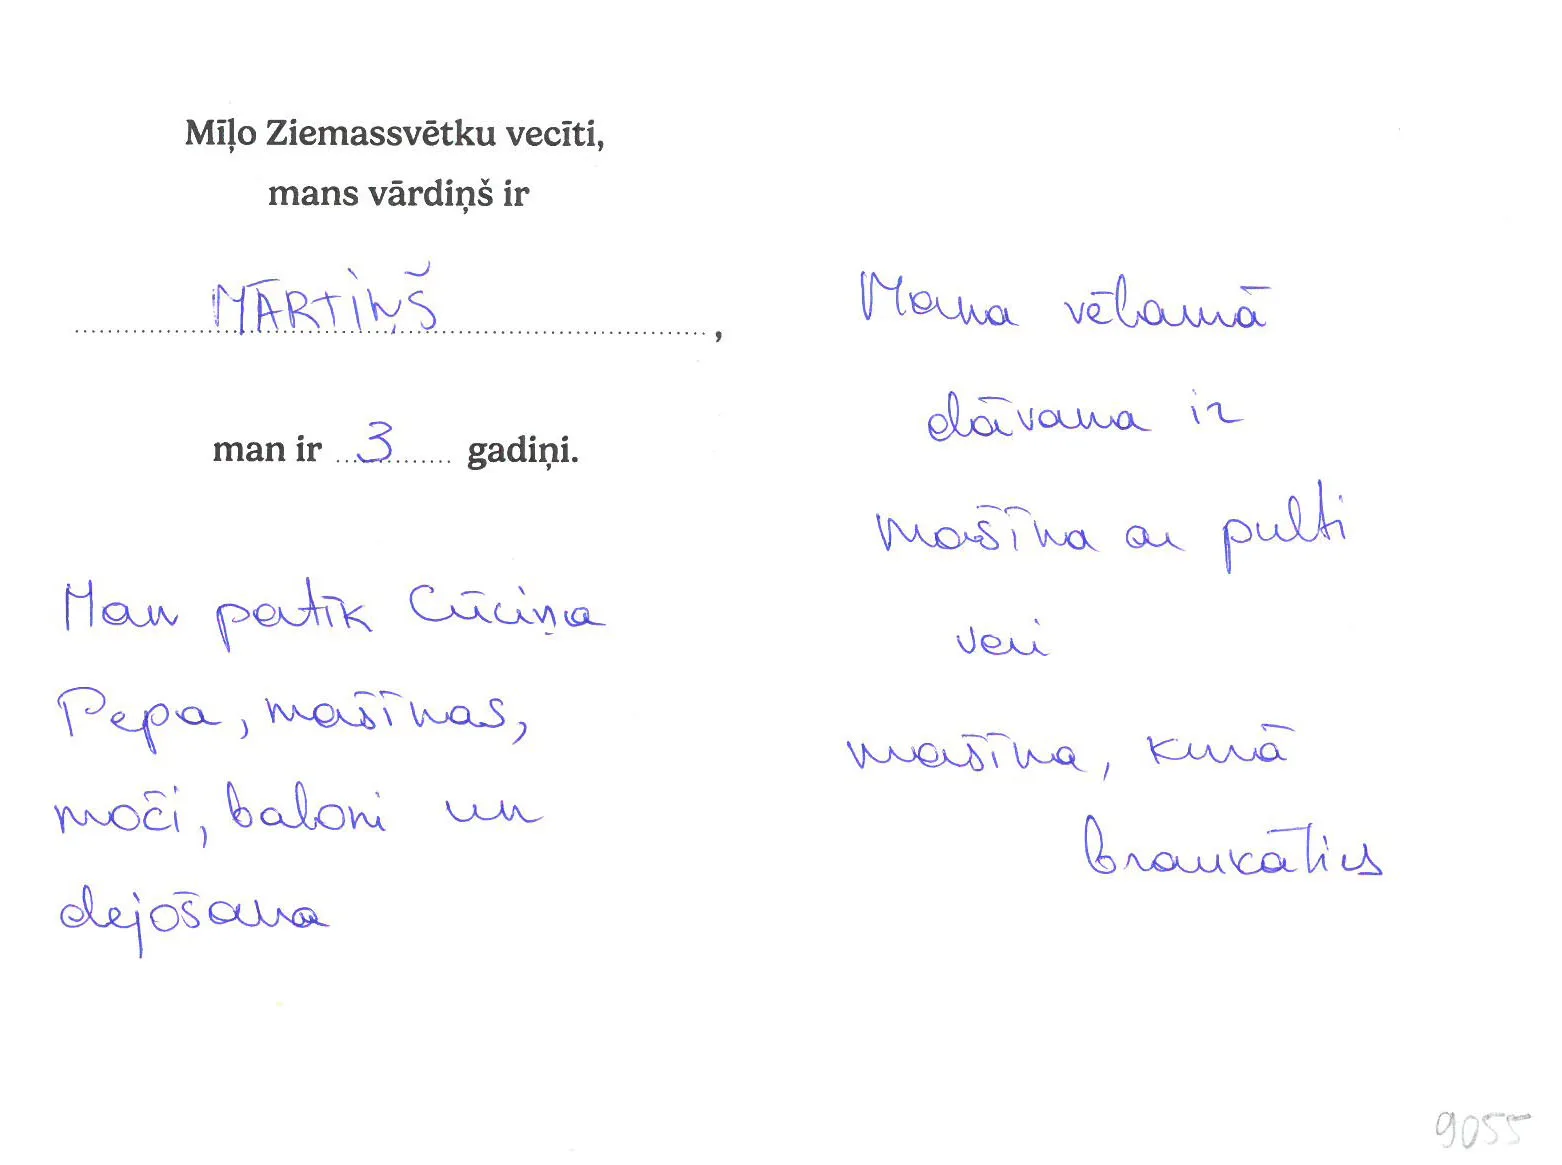 Mīļo Ziemassvētku vecīti,
mans vārdiņš ir
MĀRTIŅŠ,
man ir 3 gadiņi.
Man patīk Cūciņa
Pepa, mašīnas,
moči, baloni un
dejošana
Mana vēlamā
dāvana ir
mašīna ar pulti
vai
mašīna, kurā
braukāties
9055